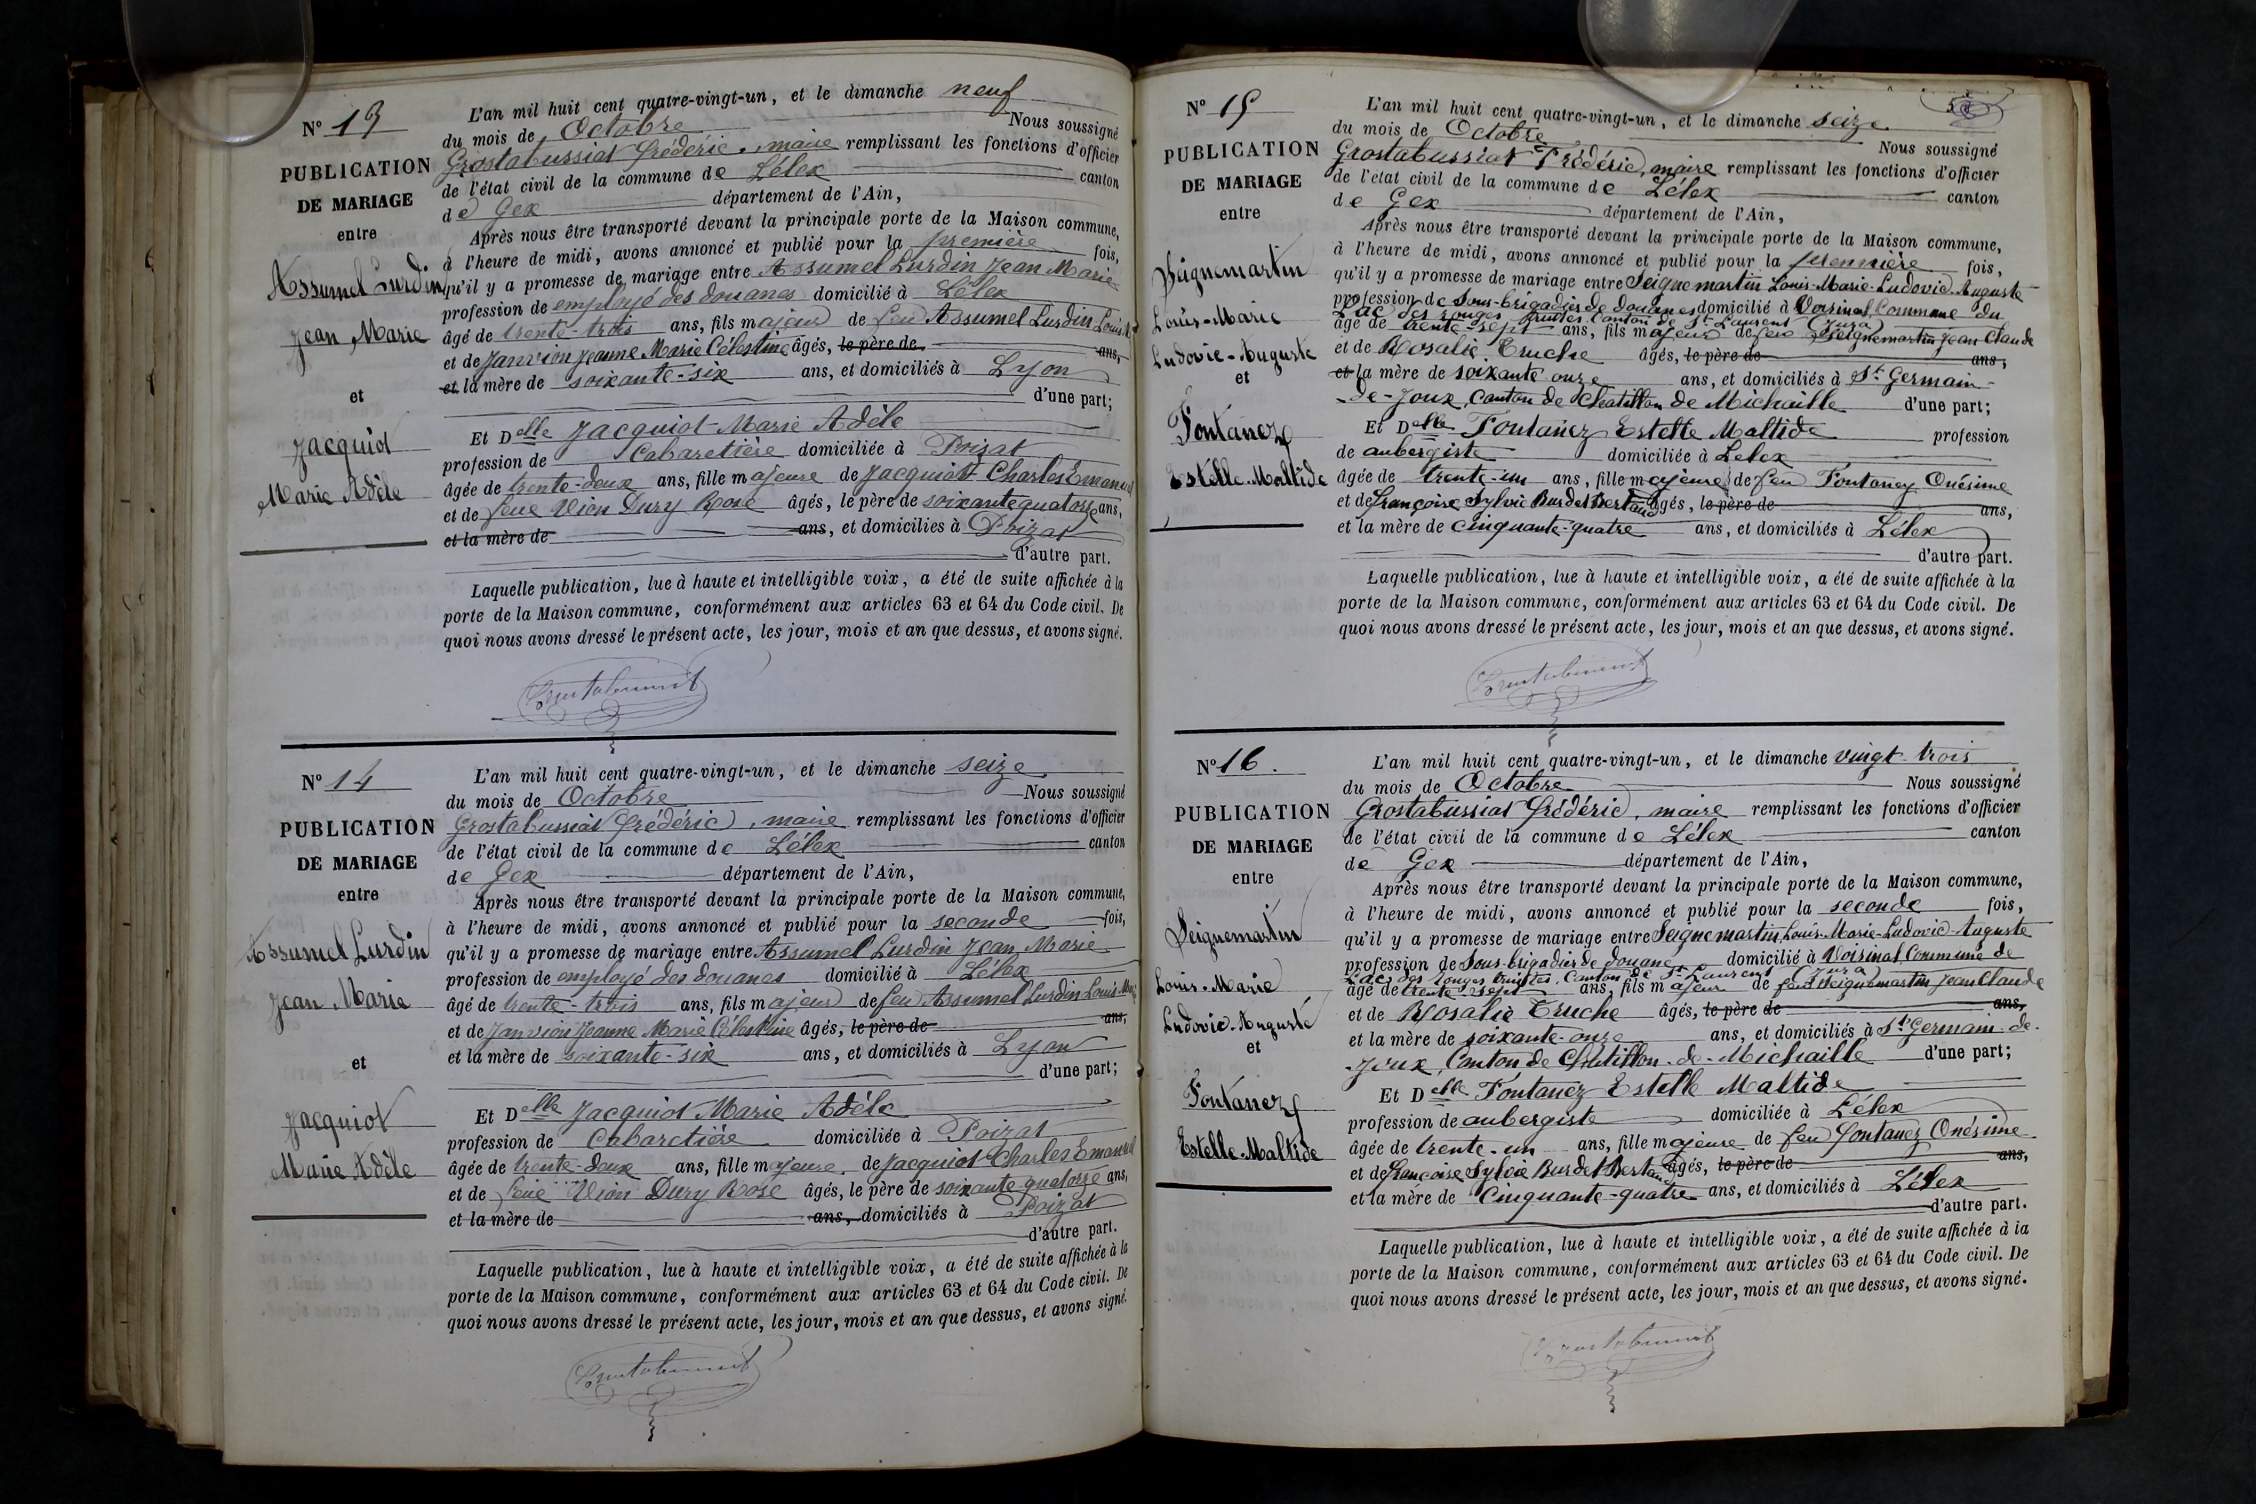 N° 13
PUBLICATION
DE MARIAGE
entre
Assumel Lurdin
Jean Marie
et
Jacquiot
Marie Adèle
L'an mil huit cent quatre-vingt-un, et le dimanche neuf
du mois de Octobre Nous soussigné
Grostabussiat Frédéric, maire remplissant les fonctions d'officier
de l'état civil de la commune de Lélex canton
de Gex département de l'Ain,
Après nous être transporté devant la principale porte de la Maison commune,
à l'heure de midi, avons annoncé et publié pour la première fois,
qu'il y a promesse de mariage entre Assumel Lurdin Jean Marie
profession de employé des douanes domicilié à Lélex
âgé de trente-trois ans, fils majeur de feu Assumel Lurdin Louis
et de Janvion Jeanne Marie Célestine âgés, le père de ans,
et la mère de soixante-six ans, et domiciliés à Lyon
d'une part;
Et Delle Jacquiot Marie Adèle
profession de Cabaretière domiciliée à Poizat
âgée de trente-deux ans, fille majeure de Jacquiot Charles Emanuel
et de feue Vion Dury Rose âgés, le père de soixante quatorze ans,
et la mère de ans, et domiciliés à Poizat
d'autre part.
Laquelle publication, lue à haute et intelligible voix, a été de suite affichée à la
porte de la Maison commune, conformément aux articles 63 et 64 du Code civil. De
quoi nous avons dressé le présent acte, les jour, mois et an que dessus, et avons signé.
Grostabussiat
N° 14
PUBLICATION
DE MARIAGE
entre
Assumel Lurdin
Jean Marie
et
Jacquiot
Marie Adèle
L'an mil huit cent quatre-vingt-un, et le dimanche seize
du mois de Octobre Nous soussigné
Grostabussiat Frédéric, maire remplissant les fonctions d'officier
de l'état civil de la commune de Lélex canton
de Gex département de l'Ain,
Après nous être transporté devant la principale porte de la Maison commune,
à l'heure de midi, avons annoncé et publié pour la seconde fois,
qu'il y a promesse de mariage entre Assumel Lurdin Jean Marie
profession de employé des douanes domicilié à Lélex
âgé de trente-trois ans, fils majeur de feu Assumel Lurdin Louis
et de Janvion Jeanne Marie Célestine âgés, le père de ans,
et la mère de soixante-six ans, et domiciliés à Lyon
d'une part;
Et Delle Jacquiot Marie Adèle
profession de Cabaretière domiciliée à Poizat
âgée de trente-deux ans, fille majeure de Jacquiot Charles Emanuel
et de feue Vion Dury Rose âgés, le père de soixante quatorze ans,
et la mère de ans, domiciliés à Poizat
d'autre part.
Laquelle publication, lue à haute et intelligible voix, a été de suite affichée à la
porte de la Maison commune, conformément aux articles 63 et 64 du Code civil. De
quoi nous avons dressé le présent acte, les jour, mois et an que dessus, et avons signé.
Grostabussiat
N° 15
PUBLICATION
DE MARIAGE
entre
Seignemartin
Louis-Marie
Ludovic-Auguste
et
Fontanez
Estelle-Maltide
L'an mil huit cent quatre-vingt-un, et le dimanche seize
du mois de Octobre Nous soussigné
Grostabussiat Frédéric, maire remplissant les fonctions d'officier
de l'état civil de la commune de Lélex canton
de Gex département de l'Ain,
Après nous être transporté devant la principale porte de la Maison commune,
à l'heure de midi, avons annoncé et publié pour la premmière fois,
qu'il y a promesse de mariage entre Seignemartin Louis-Marie-Ludovic Auguste
profession de Sous-brigadier de douanes domicilié à Voisinal, Commune du
Lac des rouges truites, Canton de St Laurent (Jura)
âgé de trente-sept ans, fils majeur de feu Seignemartin Jean Claude
et de Rosalie Truche âgés, le père de ans,
et la mère de soixante onze ans, et domiciliés à St Germain-
-de-Joux, Canton de Chatillon de Michaille d'une part;
Et Delle Fontanez Estelle Maltide profession
de aubergiste domiciliée à Lelex
âgée de trente-un ans, fille majeure de feu Fontanez Onésime
et de Françoise Sylvie Burdet Bertand âgés, le père de ans,
et la mère de cinquante-quatre ans, et domiciliés à Lélex
d'autre part.
Laquelle publication, lue à haute et intelligible voix, a été de suite affichée à la
porte de la Maison commune, conformément aux articles 63 et 64 du Code civil. De
quoi nous avons dressé le présent acte, les jour, mois et an que dessus, et avons signé.
Grostabussiat
N° 16.
PUBLICATION
DE MARIAGE
entre
Seignemartin
Louis-Marie
Ludovic-Auguste
et
Fontanez
Estelle-Maltide
L'an mil huit cent quatre-vingt-un, et le dimanche vingt-trois
du mois de Octobre Nous soussigné
Grostabussiat Frédéric, maire remplissant les fonctions d'officier
de l'état civil de la commune de Lélex canton
de Gex département de l'Ain,
Après nous être transporté devant la principale porte de la Maison commune,
à l'heure de midi, avons annoncé et publié pour la seconde fois,
qu'il y a promesse de mariage entre Seignemartin, Louis-Marie-Ludovic-Auguste
profession de Sous-brigadier de douane domicilié à Voisinal, Commune de
Lac des rouges truites, Canton de St Laurent (Jura)
âgé de trente-sept ans, fils majeur de feu Seignemartin Jean Claude
et de Rosalie Truche âgés, le père de ans,
et la mère de soixante-onze ans, et domiciliés à St Germain-de-
-Joux, Canton de Chatillon-de-Michaille d'une part;
Et Delle Fontanez Estelle Maltide
profession de aubergiste domiciliée à Lélex
âgée de trente-un ans, fille majeure de feu Fontanez Onésime
et de Françoise Sylvie Burdet Bertand âgés, le père de ans,
et la mère de Cinquante-quatre ans, et domiciliés à Lélex
d'autre part.
Laquelle publication, lue à haute et intelligible voix, a été de suite affichée à la
porte de la Maison commune, conformément aux articles 63 et 64 du Code civil. De
quoi nous avons dressé le présent acte, les jour, mois et an que dessus, et avons signé.
Grostabussiat